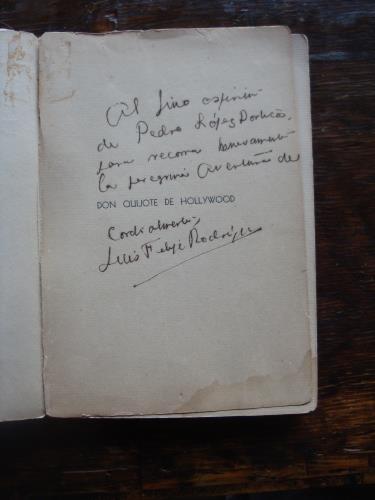 Al fino espíritu
de Pedro López Dorticós,
para recorra nuevamente
la peregrina aventura de
DON QUIJOTE DE HOLLYWOOD
Cordialmente,
Luis Felipe Rodríguez